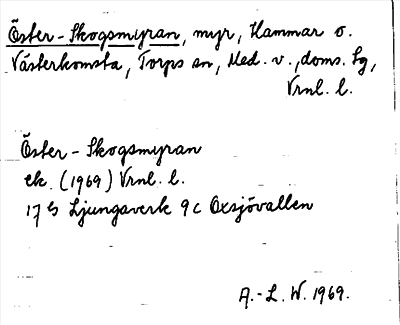 Öster-Skogsmyran, myr, Hammar o.
Västerkomsta, Torps sn, Med. v., doms. sg,
Vrnl. l.
Öster-Skogsmyran
ek. (1969) Vrnl. l.
17 G Ljungaverk 9 c Oxsjövallen
A.-L. W. 1969.